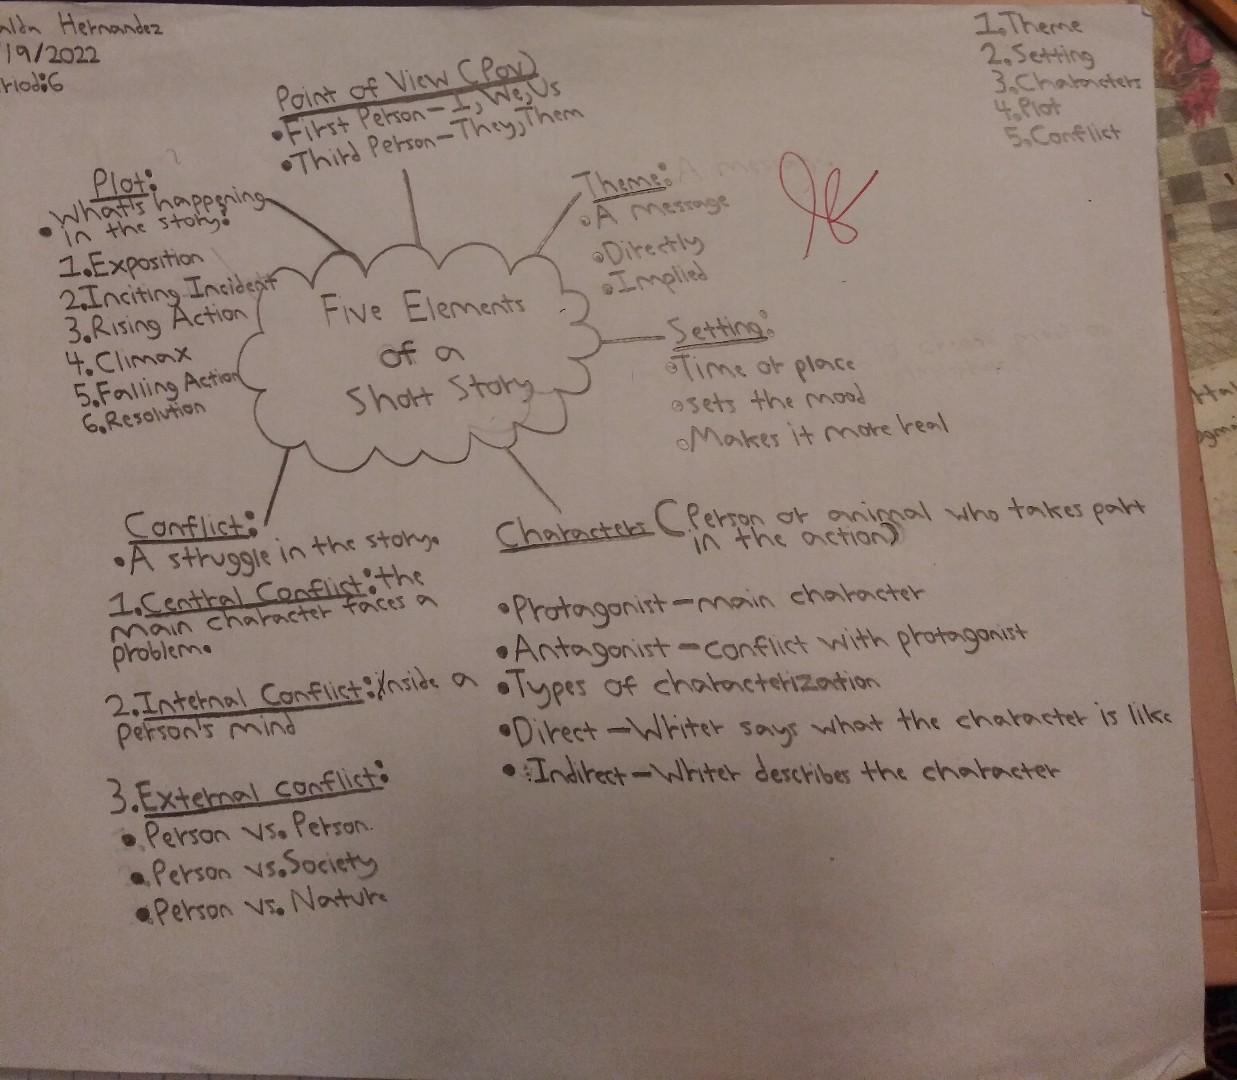 Hernandez
/9/2022
riod:6
1.Theme
2.Setting
3.Characters
4.Plot
5.Conflict
Point of View (Pov)
•First Person-I, We, Us
•Third Person-They, Them
Plot:
•What's happening
in the story:
1.Exposition
2.Inciting Incident
3.Rising Action
4.Climax
5.Falling Action
6.Resolution
Theme:
•A message
•Directly
•Implied
Five Elements
of a
Short Story
Setting:
•Time or place
•sets the mood
•Makes it more real
Conflict:
•A struggle in the story.
1.Central Conflict: the
main character faces a
problem.
2.Internal Conflict: Inside a
person's mind
3.External conflict:
•Person vs. Person.
•Person vs. Society
•Person vs. Nature
Characters (Person or animal who takes part
in the action)
•Protagonist-main character
•Antagonist-conflict with protagonist
•Types of characterization
•Direct-Writer says what the character is like
•Indirect-Writer describes the character